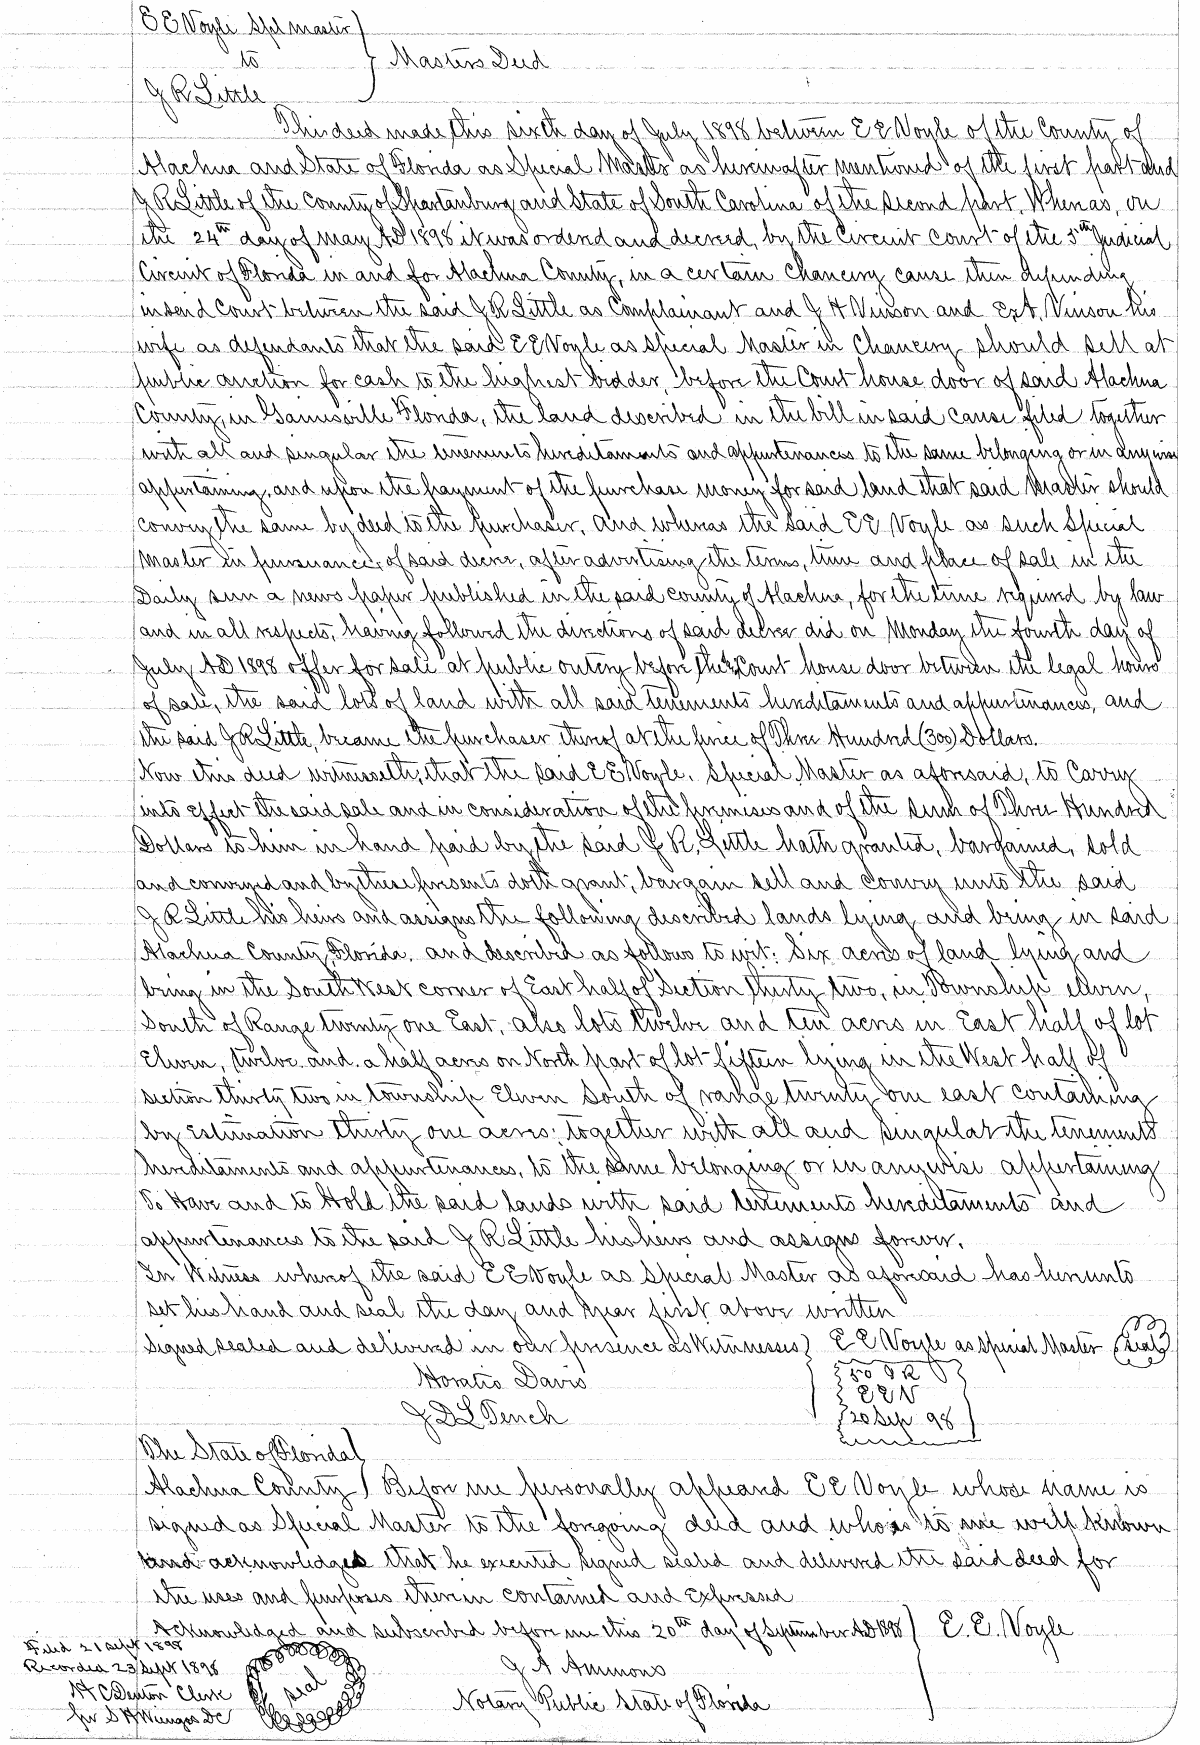 E E Voyle Spl master
to } Masters Deed
J R Little
This deed made this sixth day of July 1898 between E E Voyle of the County of
Alachua and State of Florida as Special Master as hereinafter mentioned of the first part and
J R Little of the County of Spartanburg and State of South Carolina of the second part, Whereas, on
the 24th day of May AD 1898 it was ordered and decreed, by the Circuit Court of the 5th Judicial
Circuit of Florida in and for Alachua County, in a certain Chancery cause then depending
in said Court between the said J R Little as Complainant and J H Vinson and Vinson his
wife as defendants that the said E E Voyle as Special Master in Chancery should sell at
public auction for cash to the highest bidder, before the Court house door of said Alachua
County, in Gainesville Florida, the land described in the bill in said cause filed together
with all and singular the tenements hereditaments and appurtenances to the same belonging or in anywise
appertaining, and upon the payment of the purchase money for said land that said Master should
convey the same by deed to the purchaser, And whereas the said E E Voyle as such Special
Master in pursuance of said decree, after advertising the terms, time and place of sale in the
Daily Sun a news paper published in the said county of Alachua, for the time required by law
and in all respects, having followed the directions of said decree did on Monday the fourth day of
July AD 1898 offer for sale at public outcry before the Court house door between the legal hours
of sale, the said lots of land with all said tenements hereditaments and appurtenances, and
the said J R Little, became the purchaser thereof at the price of Three Hundred (300) Dollars.
Now this deed witnesseth, that the said E E Voyle, Special Master as aforesaid, to Carry
into Effect the said sale and in consideration of the premises and of the sum of Three Hundred
Dollars to him in hand paid by the said J R, Little hath granted, bargained, sold
and conveyed and by these presents doth grant, bargain sell and convey unto the said
J R Little his heirs and assigns the following described lands lying and being in said
Alachua County, Florida, and described as follows to wit: Six acres of land lying and
being in the South West corner of East half of Section thirty two, in Township eleven,
South of Range twenty one East, also lots twelve and ten acres in East half of lot
Eleven, twelve and a half acres on North part of lot fifteen lying in the West half of
section thirty two in township Eleven South of range twenty one east containing
by Estimation thirty one acres; together with all and singular the tenements
hereditaments and appurtenances, to the same belonging or in anywise appertaining
To Have and to Hold the said lands with said tenements hereditaments and
appurtenances to the said J R Little his heirs and assigns forever.
In Witness whereof the said E E Voyle as Special Master as aforesaid has hereunto
set his hand and seal the day and year first above written
Signed sealed and delivered in our presence as Witnesses } E E Voyle as Special Master (seal)
Horatio Davis
50 I R
E E V
J D L Tench
20 Sep 98
The State of Florida
Alachua County } Before me personally appeared E E Voyle whose name is
signed as Special Master to the foregoing deed and who is to me well known
and acknowledged that he executed signed sealed and delivered the said deed for
the uses and purposes therein contained and Expressed
Acknowledged and subscribed before me this 20th day of September AD 1898 } E. E. Voyle
J A Ammons
Notary Public State of Florida
seal
Filed 21 Sept 1898
Recorded 23 Sept 1898
H C Denton Clerk
per S H Wienges DC